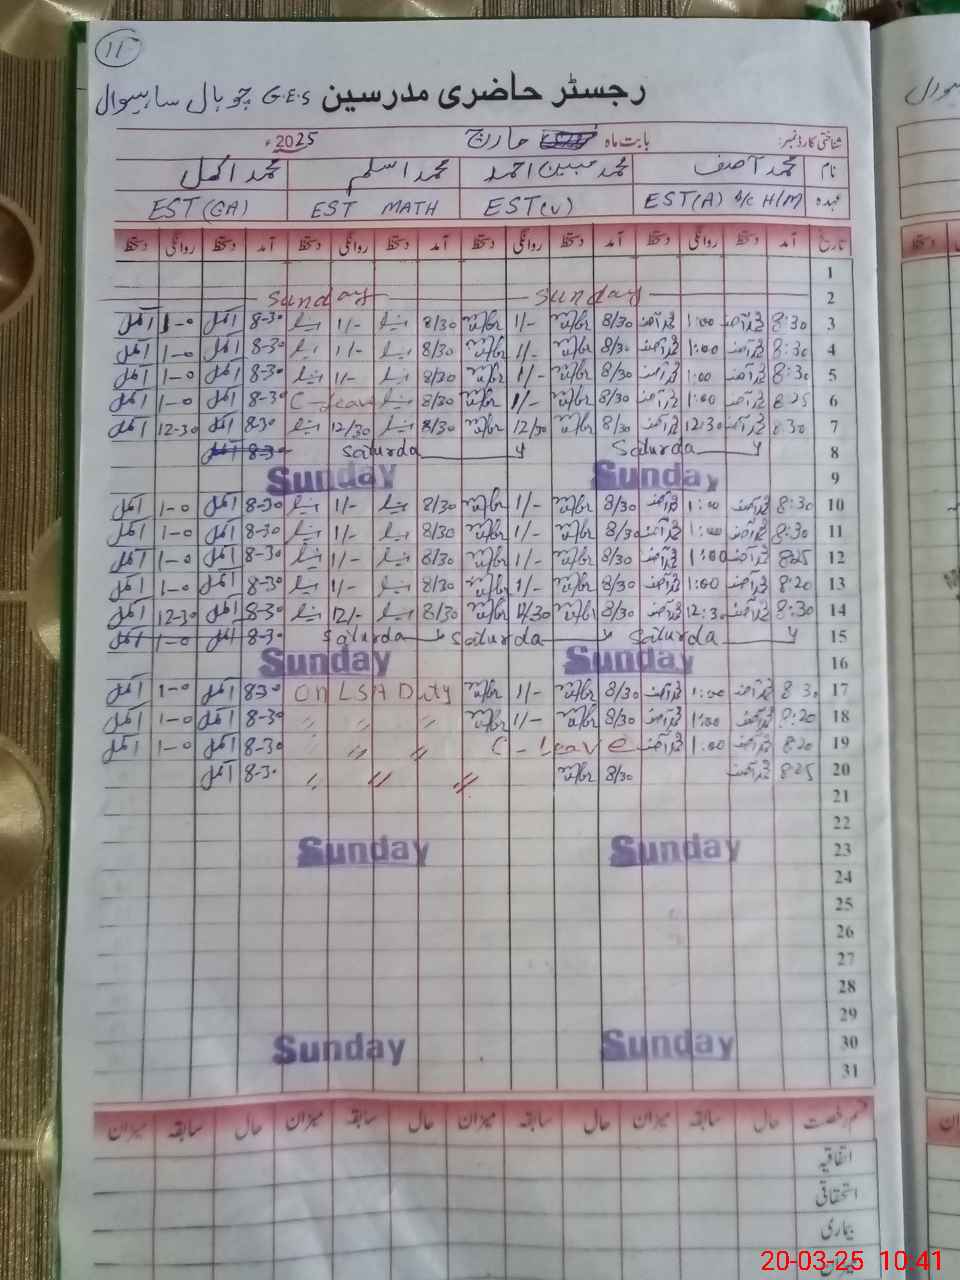 11
رجسٹر حاضری مدرسین G.E.S چوپال ساہیوال
شناختی کارڈ نمبر: بابت ماہ مارچ 2025ء
نام محمد آصف محمد مبین احمد محمد اسلم محمد اکمل
عہدہ EST(A) I/C H/M EST(V) EST MATH EST(GA)
تاریخ آمد دستخط روانگی دستخط آمد دستخط روانگی دستخط آمد دستخط روانگی دستخط آمد دستخط روانگی دستخط
1
2 Sunday Sunday
3 8:30 محمد آصف 1:00 محمد آصف 8/30 1/- 8/30 1/- 8-30 اکمل 1-0 اکمل
4 8:30 محمد آصف 1:00 محمد آصف 8/30 1/- 8/30 1/- 8-30 اکمل 1-0 اکمل
5 8:30 محمد آصف 1:00 محمد آصف 8/30 1/- 8/30 1/- 8-30 اکمل 1-0 اکمل
6 8:25 محمد آصف 1:00 محمد آصف 8/30 1/- 8/30 C-Leave 8-30 اکمل 1-0 اکمل
7 8:30 محمد آصف 12:30 محمد آصف 8/30 12/30 8/30 12/30 8-30 اکمل 12-30 اکمل
8 Saturda y Saturda y 8-30 اکمل
9 Sunday Sunday
10 8:30 محمد آصف 1:00 محمد آصف 8/30 1/- 8/30 1/- 8-30 اکمل 1-0 اکمل
11 8:30 محمد آصف 1:00 محمد آصف 8/30 1/- 8/30 1/- 8-30 اکمل 1-0 اکمل
12 8:25 محمد آصف 1:00 محمد آصف 8/30 1/- 8/30 1/- 8-30 اکمل 1-0 اکمل
13 8:20 محمد آصف 1:00 محمد آصف 8/30 1/- 8/30 1/- 8-30 اکمل 1-0 اکمل
14 8:30 محمد آصف 12:30 محمد آصف 8/30 8/30 12/- 8-30 اکمل 12-30 اکمل
15 Saturda y Saturda y Saturda y 8-30 اکمل 1-0 اکمل
16 Sunday Sunday
17 8:30 محمد آصف 1:00 محمد آصف 8/30 1/- On LSA Duty 8-30 اکمل 1-0 اکمل
18 8:20 محمد آصف 1:00 محمد آصف 8/30 1/- 〃 〃 〃 8-30 اکمل 1-0 اکمل
19 8:20 محمد آصف 1:00 محمد آصف C-Leave 〃 〃 〃 8-30 اکمل 1-0 اکمل
20 8:25 محمد آصف 8/30 〃 〃 〃 8-30 اکمل
21
22
23 Sunday Sunday
24
25
26
27
28
29
30 Sunday Sunday
31
قسم رخصت حال سابقہ میزان حال سابقہ میزان حال سابقہ میزان حال سابقہ میزان
اتفاقیہ
استحقاقی
بیماری
میزان
20-03-25 10:41